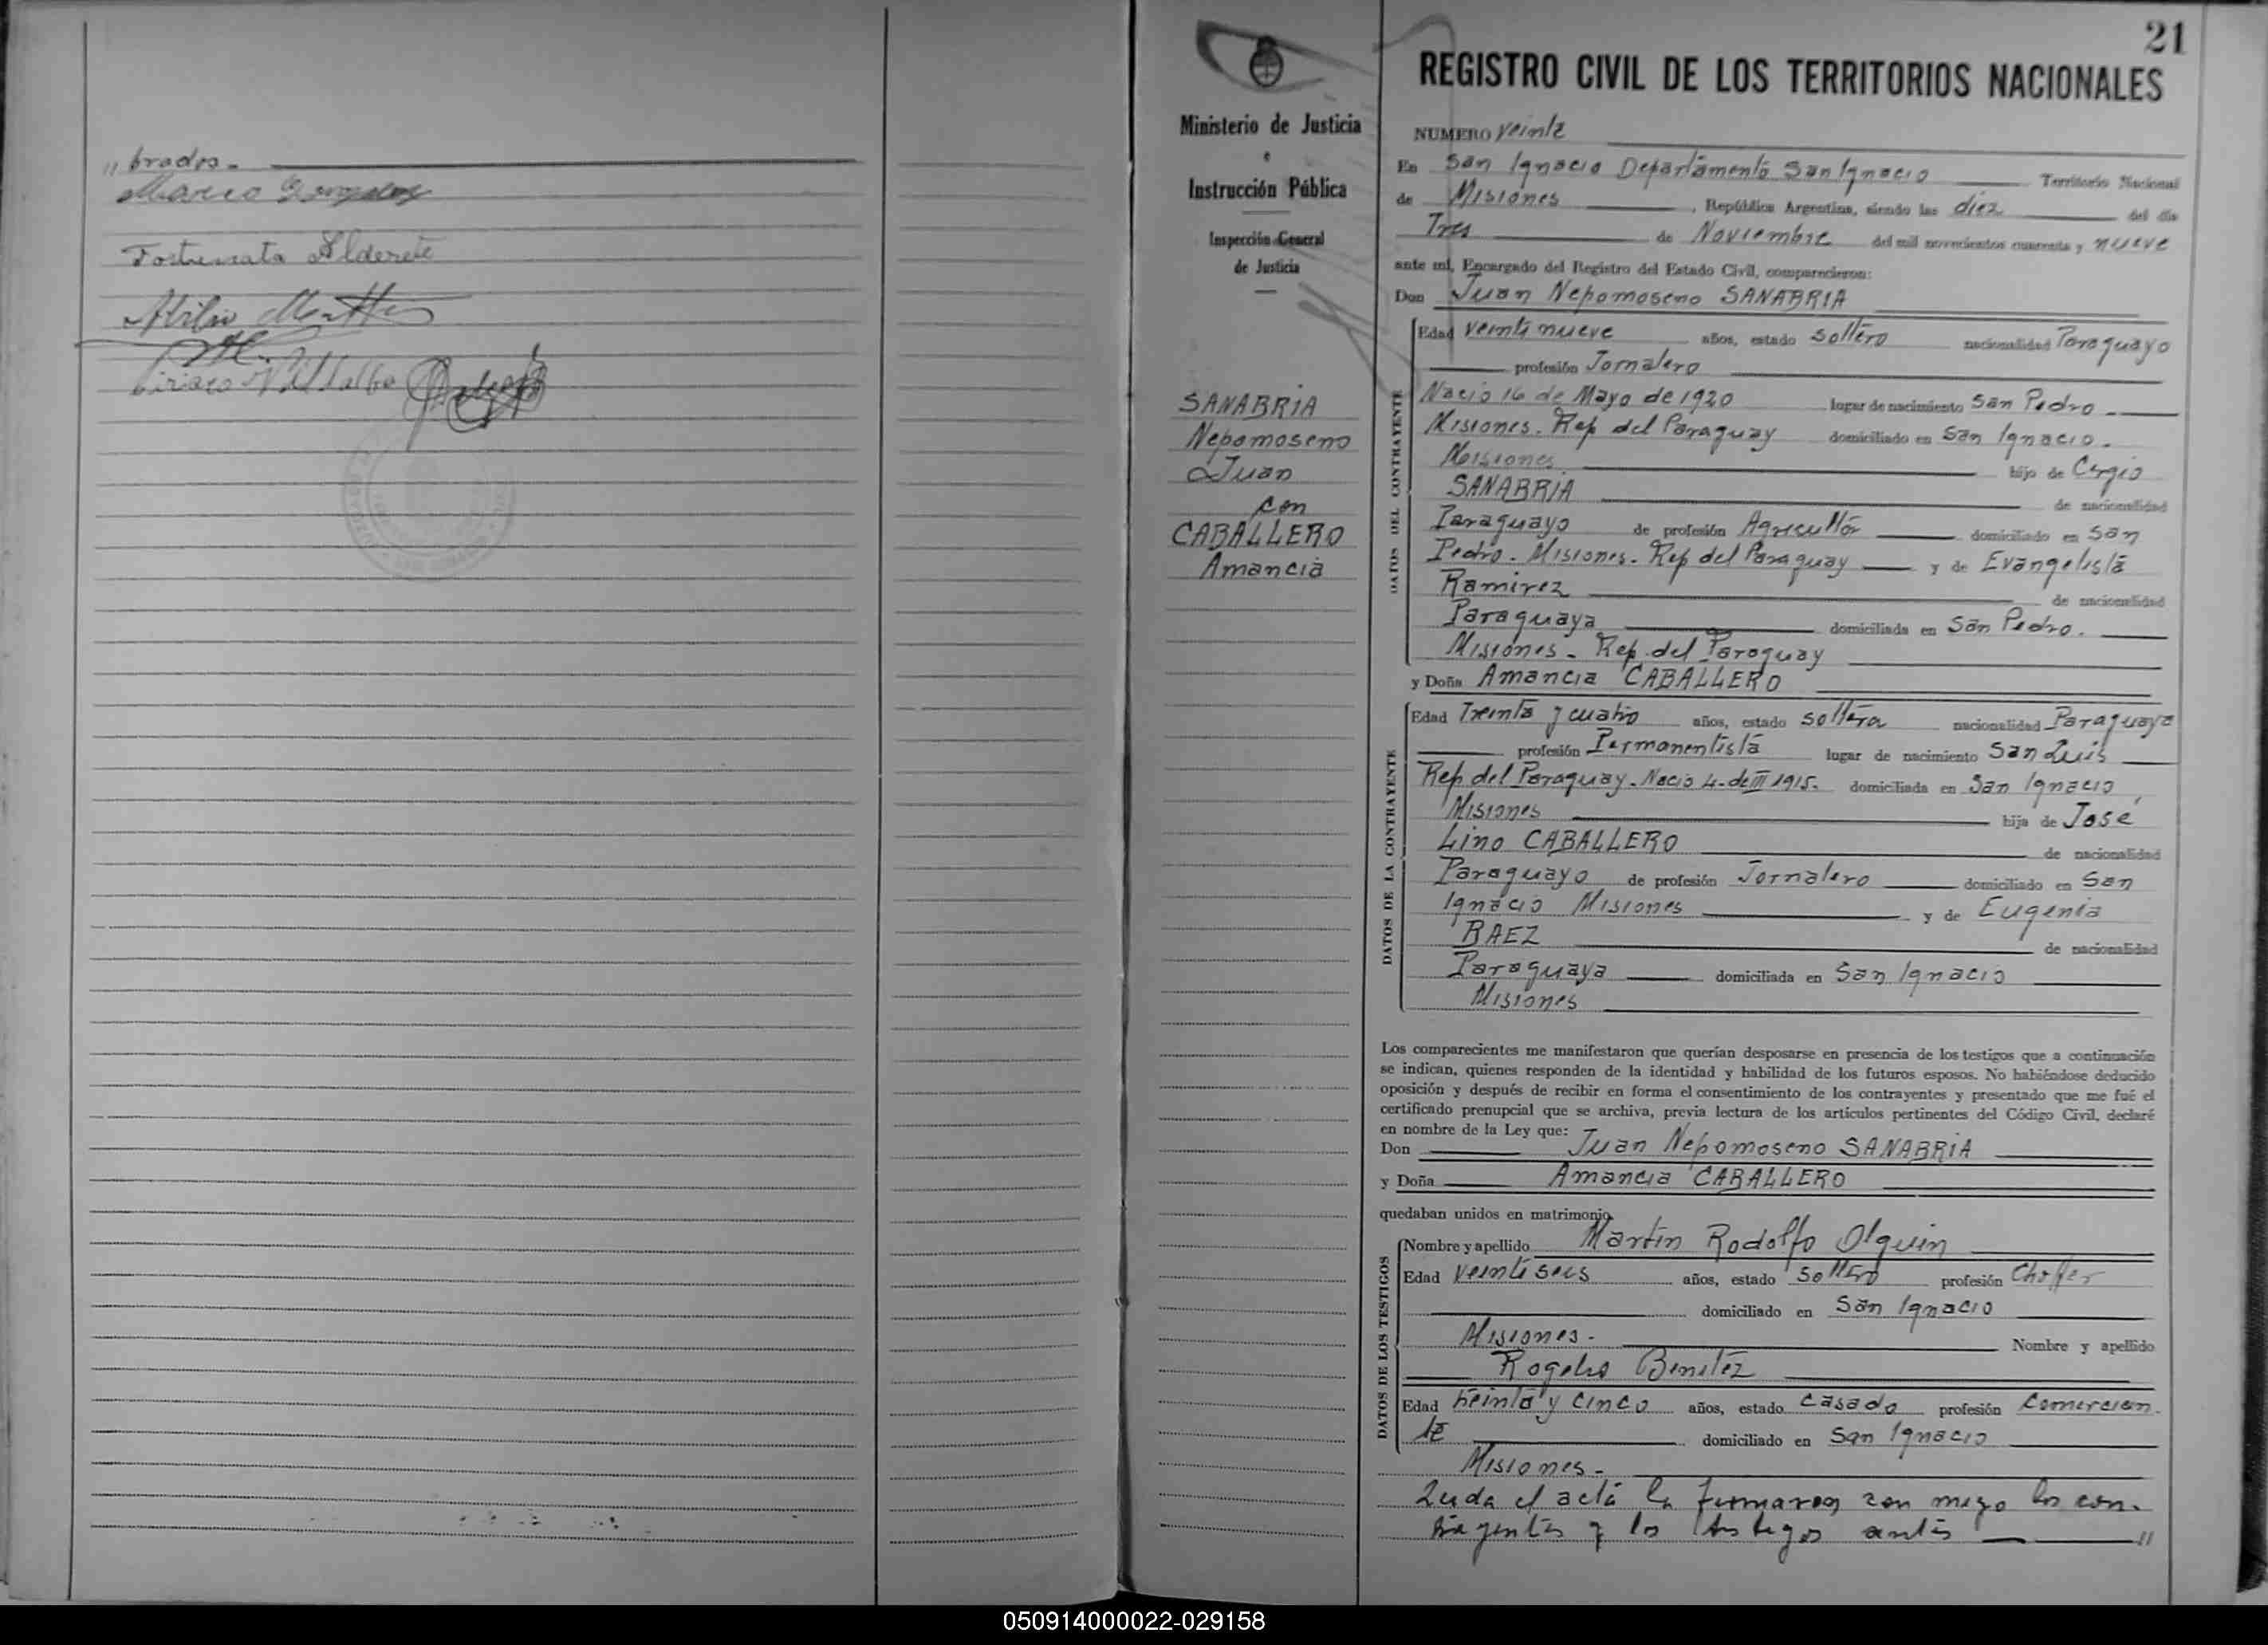 " brados.-
Marcos Gonzalez
Fortunata Alderete
Abilio
Ciriaco Villalba
21
REGISTRO CIVIL DE LOS TERRITORIOS NACIONALES
Ministerio de Justicia
e
Instrucción Pública
Inspección General
de Justicia
SANABRIA
Nepomoseno
Juan
con
CABALLERO
Amancia
NUMERO Veinte
En San Ignacio Departamento San Ignacio Territorio Nacional
de Misiones, República Argentina, siendo las diez del día
Tres de Noviembre del mil novecientos cuarenta y nueve
ante mí, Encargado del Registro del Estado Civil, comparecieron:
Don Juan Nepomoseno SANABRIA
DATOS DEL CONTRAYENTE
Edad veintinueve años, estado soltero nacionalidad Paraguayo
profesión Jornalero
Nacio 16 de Mayo de 1920 lugar de nacimiento San Pedro.-
Misiones. Rep del Paraguay domiciliado en San Ignacio.
Misiones hijo de Cergio
SANABRIA de nacionalidad
Paraguayo de profesión Agricultor domiciliado en San
Pedro. Misiones. Rep del Paraguay y de Evangelista
Ramirez de nacionalidad
Paraguaya domiciliada en San Pedro.
Misiones - Rep. del Paraguay
y Doña Amancia CABALLERO
DATOS DE LA CONTRAYENTE
Edad Treinta y cuatro años, estado soltera nacionalidad Paraguaya
profesión Permanentista lugar de nacimiento San Luis
Rep del Paraguay. Nacio 4-de III 1915. domiciliada en San Ignacio,
Misiones hija de José
Lino CABALLERO de nacionalidad
Paraguayo de profesión Jornalero domiciliado en San
Ignacio Misiones y de Eugenia
BAEZ de nacionalidad
Paraguaya domiciliada en San Ignacio
Misiones
Los comparecientes me manifestaron que querían desposarse en presencia de los testigos que a continuación
se indican, quienes responden de la identidad y habilidad de los futuros esposos. No habiéndose deducido
oposición y después de recibir en forma el consentimiento de los contrayentes y presentado que me fué el
certificado prenupcial que se archiva, previa lectura de los artículos pertinentes del Código Civil, declaré
en nombre de la Ley que:
Don Juan Nepomoseno SANABRIA
y Doña Amancia CABALLERO
quedaban unidos en matrimonio.
DATOS DE LOS TESTIGOS
Nombre y apellido Martin Rodolfo Olguin
Edad veintiseis años, estado soltero profesión Choffer
domiciliado en San Ignacio
Misiones.- Nombre y apellido
Rogelio Benitez
Edad treinta y cinco años, estado casado profesión Comercian-
te domiciliado en San Ignacio
Misiones.-
Leida el acta la firmaron con migo los con-
trayentes y los testigos antes "
050914000022-029158